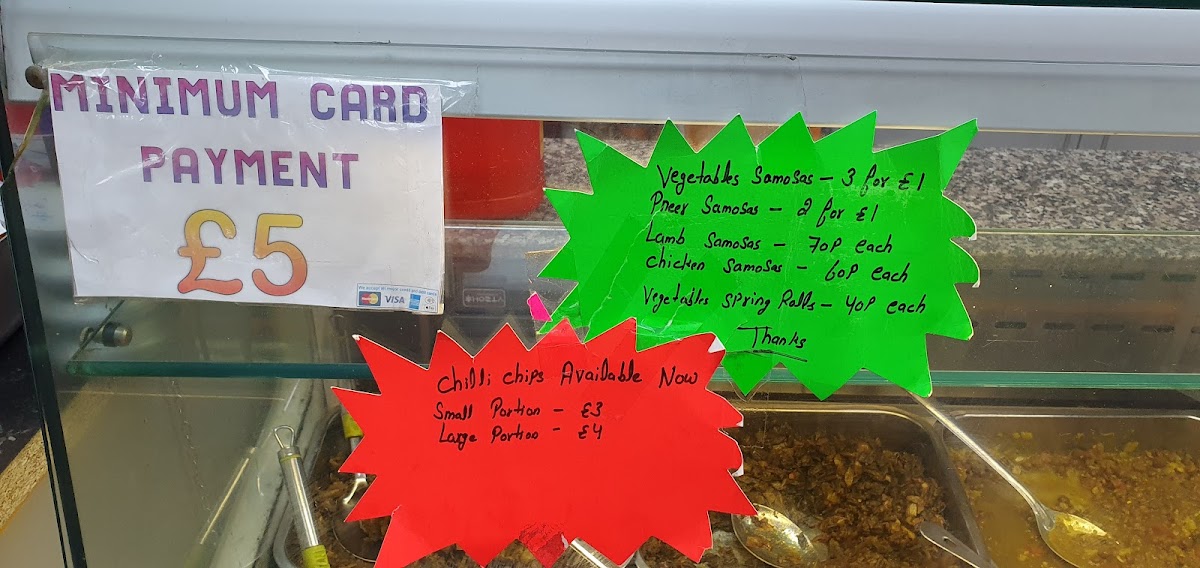 MINIMUM CARD
PAYMENT
£5
VISA
Vegetables Samosas - 3 for £1
Pneer Samosas - 2 for £1
Lamb Samosas - 70P each
chicken Samosas - 60P each
Vegetables Spring Ralls - 40P each
Thanks
Chilli chips Available Now
Small Portion - £3
Large Portion - £4